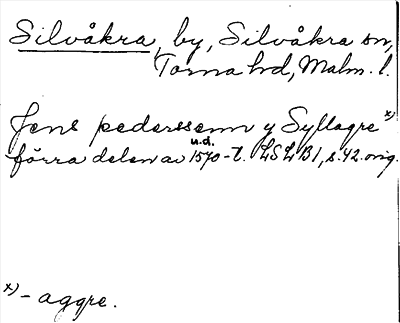 Silvåkra, by, Silvåkra sn,
Torna hd, Malm. l.
Jens pederssenn y Syllagre x)
u.d.
förra delen av 1570-t. LSLB1, s.42. orig.
x) - aggre.